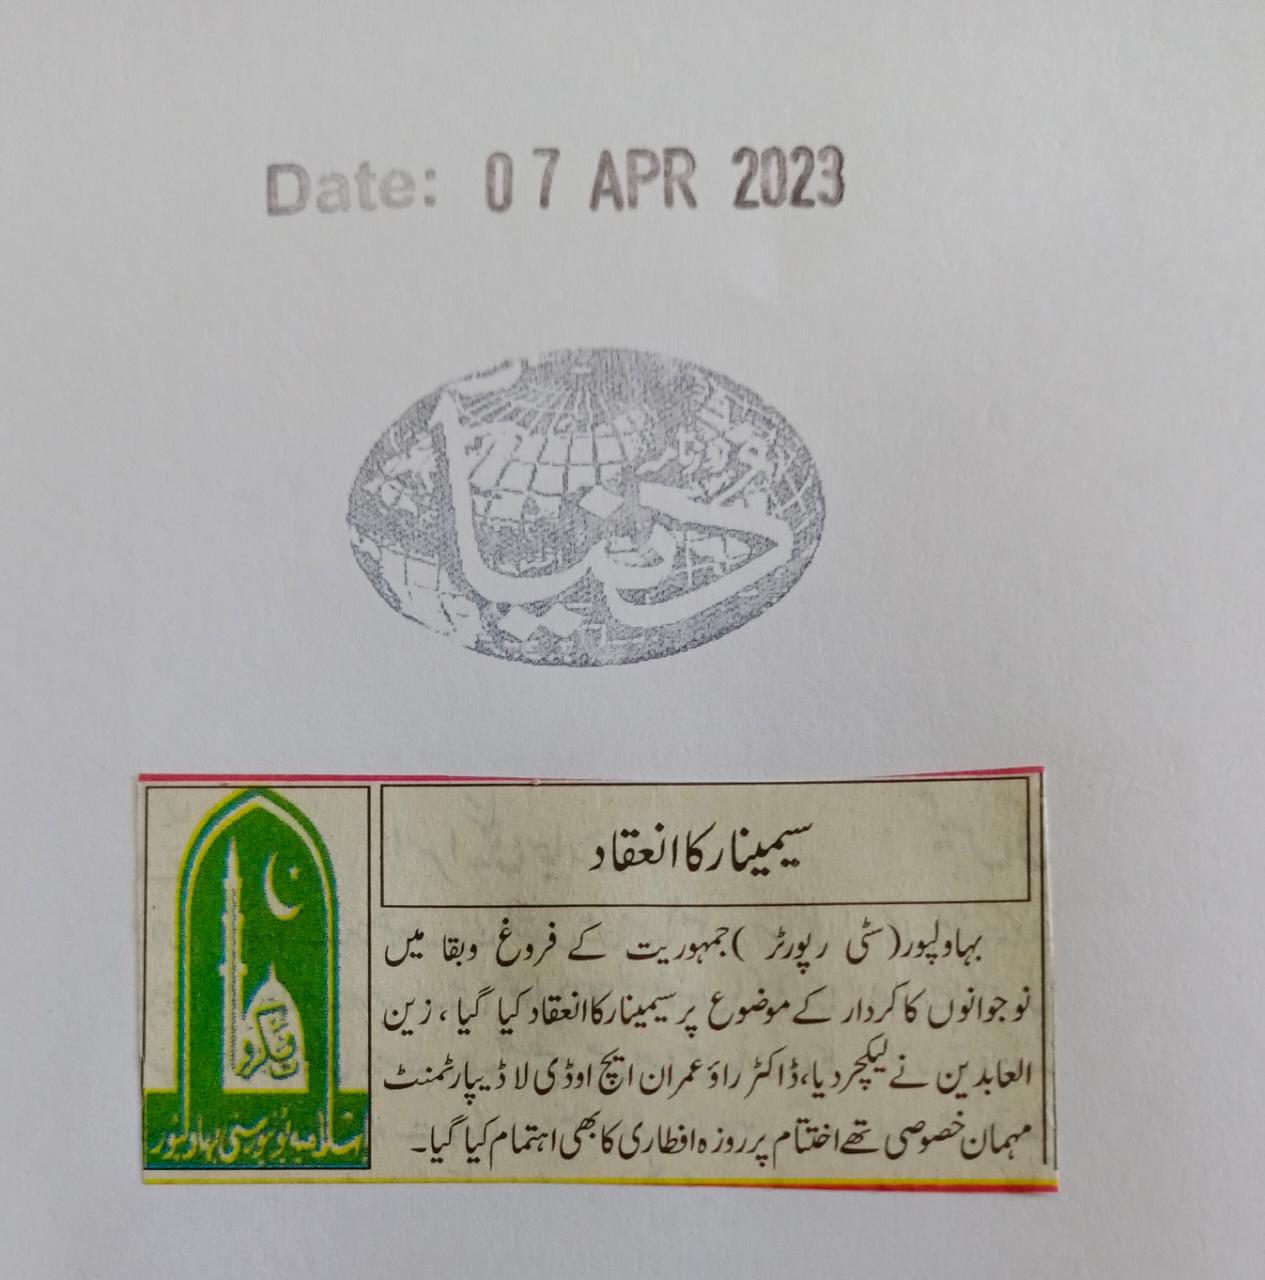 Date: 07 APR 2023
روزنامہ
دنیا
سیمینار کا انعقاد
بہاولپور(سٹی رپورٹر )جمہوریت کے فروغ وبقا میں
نوجوانوں کا کردار کے موضوع پر سیمینار کا انعقاد کیا گیا ، زین
العابدین نے لیکچر دیا،ڈاکٹر راؤ عمران ایچ اوڈی لا ڈیپارٹمنٹ
مہمان خصوصی تھے اختتام پر روزہ افطاری کا بھی اہتمام کیا گیا۔
اسلامیہ یونیورسٹی بہاولپور